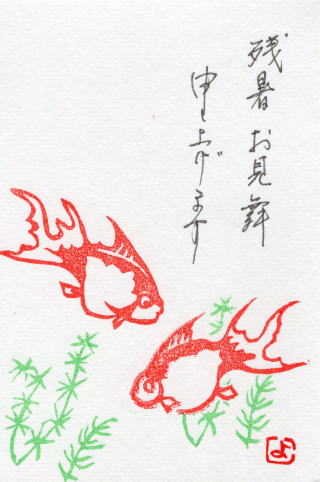 残暑お見舞
申し上げます
よ